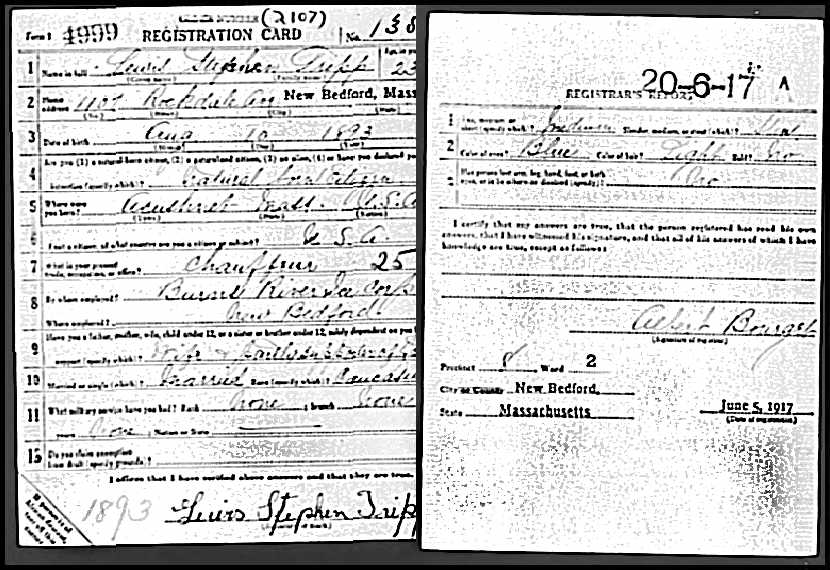 (2107)
Form 1 4999 REGISTRATION CARD No. 138
1 Name in full Lewis Stephen Tripp 23
(Given name) (Family name)
2 Home address Rockdale Av New Bedford, Mass
(No.) (Street) (City) (State)
3 Date of birth Aug 10 1893
(Month) (Day) (Year)
4 Are you (1) a natural-born citizen, (2) a naturalized citizen, (3) an alien, (4) or have you declared your
intention (specify which)? Natural born Citizen
5 Where were you born? Acushnet Mass. U.S.A
(Town) (State) (Nation)
6 If not a citizen, of what country are you a citizen or subject? U.S.A.
7 What is your present trade, occupation, or office? Chauffeur 25
8 By whom employed? River Ice Corp
Where employed? New Bedford.
9 Have you a father, mother, wife, child under 12, or a sister or brother under 12, solely dependent on you
support (specify which)? Wife
10 Married or single (which)? Married Race (specify which)? Caucasian
11 What military service have you had? Rank None ; branch None
years None ; Nation or State
12 Do you claim exemption from draft (specify grounds)?
I affirm that I have verified above answers and that they are true.
1893 Lewis Stephen Tripp
20-6-17 A
REGISTRAR'S REPORT
1 Tall, medium, or short (specify which)? Medium Slender, medium, or stout (which)?
2 Color of eyes? Blue Color of hair? Light Bald? No
3 Has person lost arm, leg, hand, foot, or both eyes, or is he otherwise disabled (specify)? No
I certify that my answers are true, that the person registered has read his own
answers, that I have witnessed his signature, and that all of his answers of which I have
knowledge are true, except as follows:
Albert Bourget
(Signature of registrar)
Precinct 8 Ward 2
City or County New Bedford,
State Massachusetts June 5, 1917
(Date of registration)